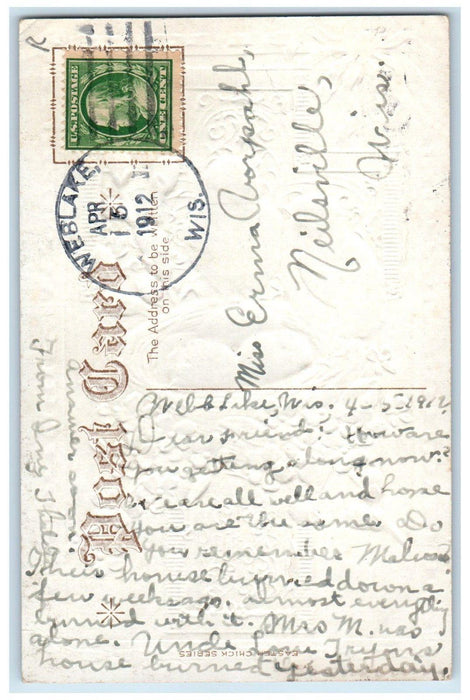 U.S. POSTAGE
ONE CENT
WEBLAKE,
APR
5
1912
WIS.
Post Card
The Address to be written
on this side
Miss Erma
Neilsville,
Wis.
Webb Lake, Wis. 4-5-1912
Dear friend: How are
you getting along now?
We are all well and hope
you are the same. Do
you remember
Their house burned down a
few weeks ago. almost everything
burned with it. Mrs M. was
alone. Uncle
house burned yesterday.
answer soon.
From
EASTER CHICK SERIES